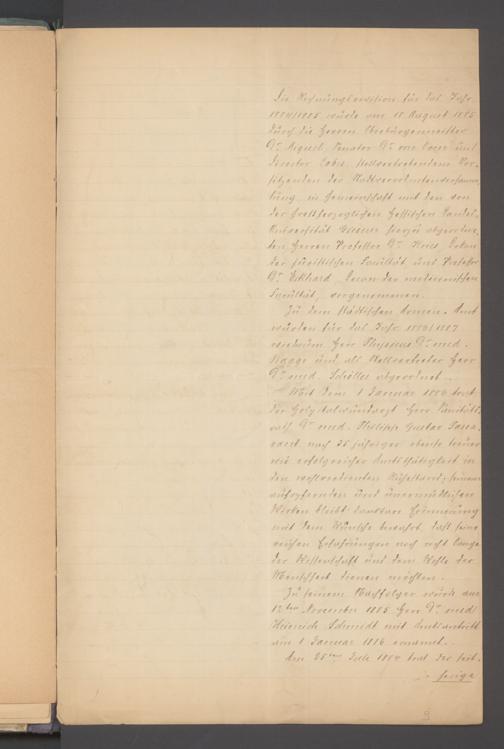 Die Rechnungsrevision für das Jahr
1884/1885 wurde am 18 August 1885
durch die Herren Oberbürgermeister
Dr. Miquel, Senator Dr. von Oven und
Director stellvertretendem Vor-
sitzenden der Stadtverordnetenversamm-
lung, in Gemeinschaft mit den von
der Großherzoglichen Hessischen Landes-
Universität Giessen hierzu abgeordne-
ten Herren Professor Dr. Dekan
der juristischen Facultät und Professor
Dr. Eckhard, Decan der medicinischen
Facultät, vorgenommen.
Zu dem städtischen Armen-Amt
wurden für das Jahr 1886/1887
wiederum Herr Physicus Dr. med.
und als Stellvertreter Herr
Dr. med. Schölles abgeordnet.
Mit dem 1 Januar 1886 trat
der Hospitalwundarzt Herr Sanitäts-
rath Dr. med. Philipp Gustav Passa-
vant nach 35 jähriger ebenso treuer
wie erfolgreicher Amtsthätigkeit in
den wohlverdienten Ruhestand; seinem
aufopfernden und unermüdlichen
Wirken bleibt dankbare Erinnerung
mit dem Wunsche bewahrt, daß seine
reichen Erfahrungen noch recht lange
der Wissenschaft und dem Wohle der
Menschheit dienen möchten.
Zu seinem Nachfolger wurde am
12ten November 1885 Herr Dr. med.
Heinrich Schmidt mit Amtsantritt
am 1 Januar 1886 ernannt.
Am 25ten Juli trat der seit-
herige